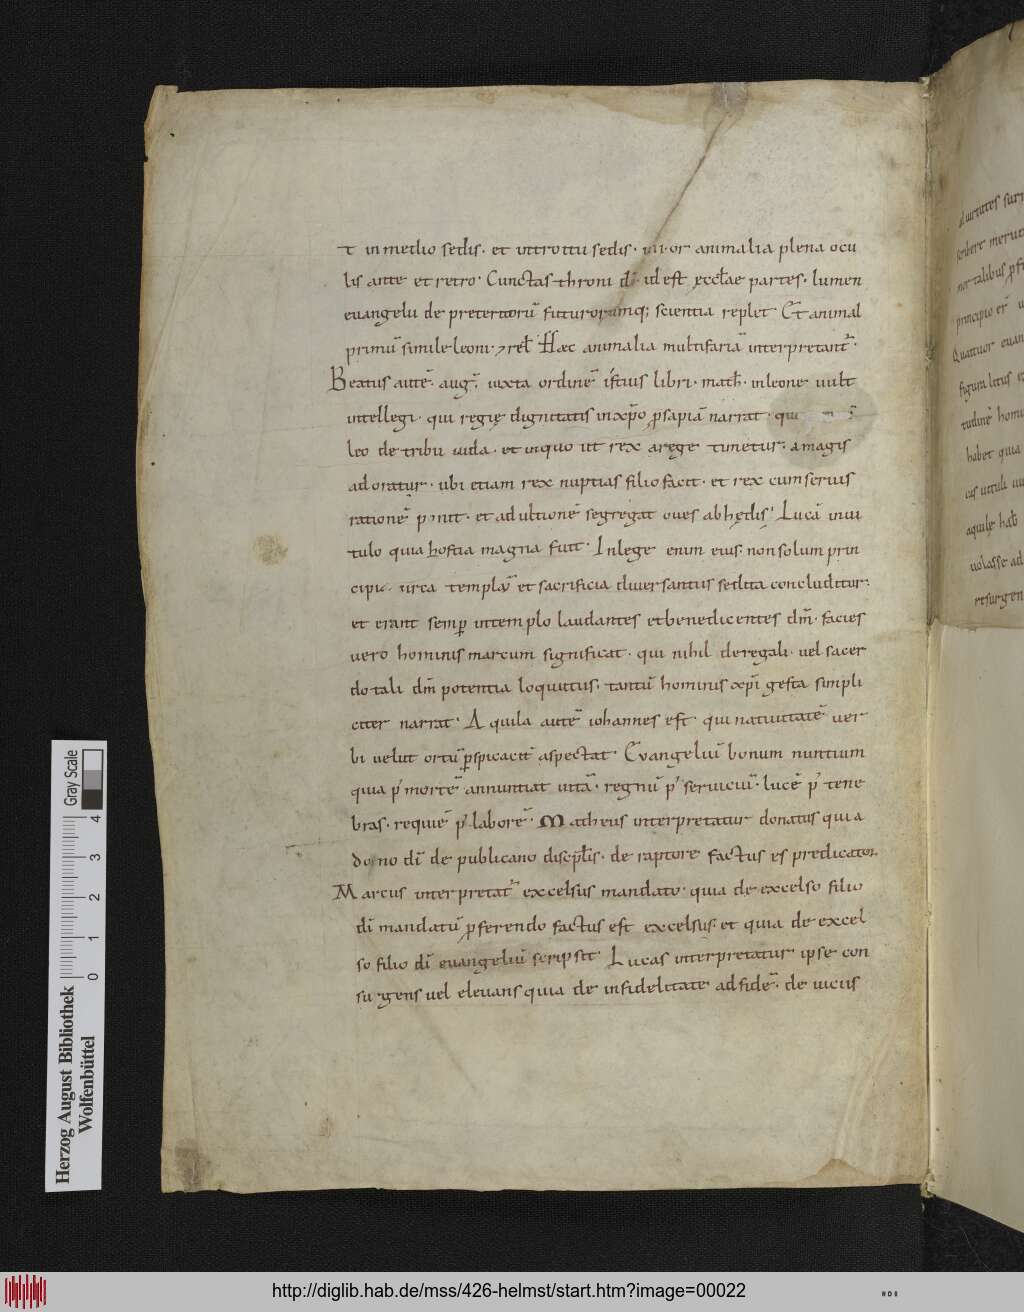 T in medio sedis. et in circuitu sedis. iiii or animalia plena ocu
lis ante et retro. Cunctas throni dī. id est ęccłae partes. lumen
euangelii de preteritorū futurorumq; scientia replet. Et animal
primū simile leoni. rel̄ Hæc animalia multifariā interpretant᷑.
Beatus autē. aug̅. iuxta ordinē istius libri. math̄. in leone uult
intellegi. qui regię dignitatis in xp̄o ꝓsapiā narrat. qui
leo de tribu iuda. et in quo ut rex a rege timetur. a magis
adoratur. ubi etiam rex nuptias filio facit. et rex cum seruis
rationē ponit. et ad ultionē segregat oues ab hędis. Lucā in ui
tulo quia hostia magna fuit. In lege enim eius. non solum prin
cipia circa templū et sacrificia diuersantius sed ita concluditur.
et erant semꝑ in templo laudantes et benedicentes dm̄. facies
uero hominis marcum significat. qui nihil de regali. uel sacer
dotali dm̄ potentia loquitus. tantū hominis xp̄i gesta simpli
citer narrat. Aquila autē iohannes est. qui natiuitatē uer
bi uelut ortū ꝑspicacit᷑ aspectat. Evangeliū bonum nuntium
quia p᷒ mortē annuntiat uitā. regnū p᷒ seruiciū. lucē p᷒ tene
bras. requiē p᷒ laborē. Matheus interpretatur donatus quia
dono dī de publicano discip̄lis. de raptore factus es predicator.
Marcus interpretat᷑ excelsus mandato. quia de excelso filio
dī mandatū ꝓferendo factus est excelsus. et quia de excel
so filio dī euangeliū scripsit. Lucas interpretatur ipse con
surgens uel eleuans quia de infidelitate ad fidē. de uiciis
ad uirtutes
scribere
mortalibus
principio
Quattuor euan
figura
tudinē homi
habet quia
uituli
aquilę hab̄
uolasse ad
resurgen
Herzog August Bibliothek
Wolfenbüttel
0 1 2 3 4
Gray Scale
http://diglib.hab.de/mss/426-helmst/start.htm?image=00022